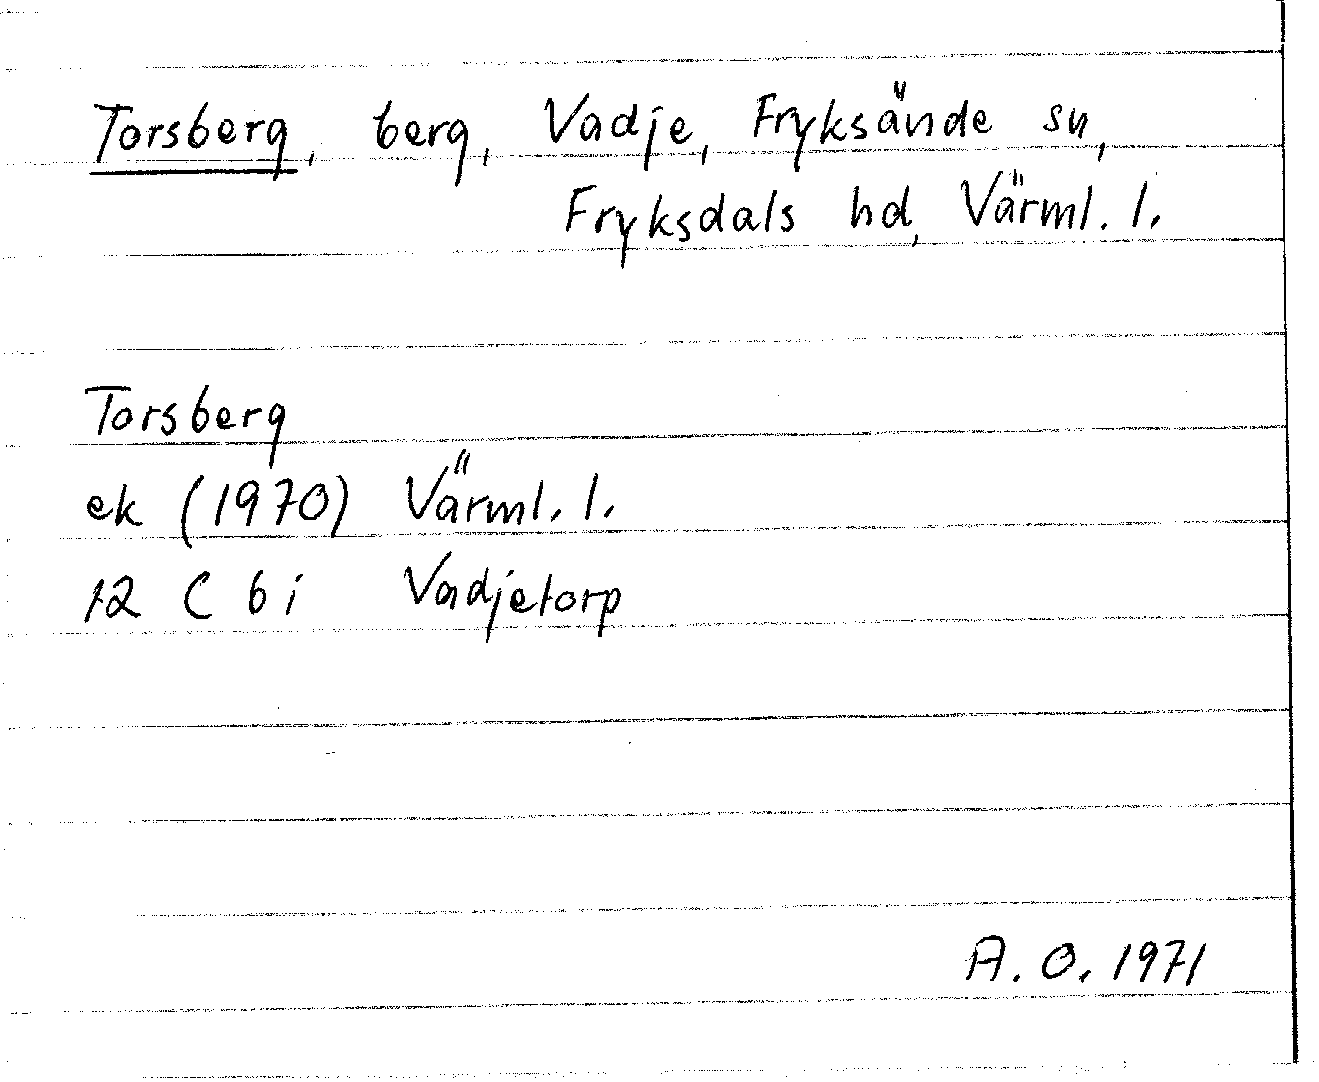 Torsberg, berg, Vadje, Fryksände sn,
Fryksdals hd, Värml. l.
Torsberg
ek (1970) Värml. l.
12 C 6 i Vadjetorp
A. O. 1971